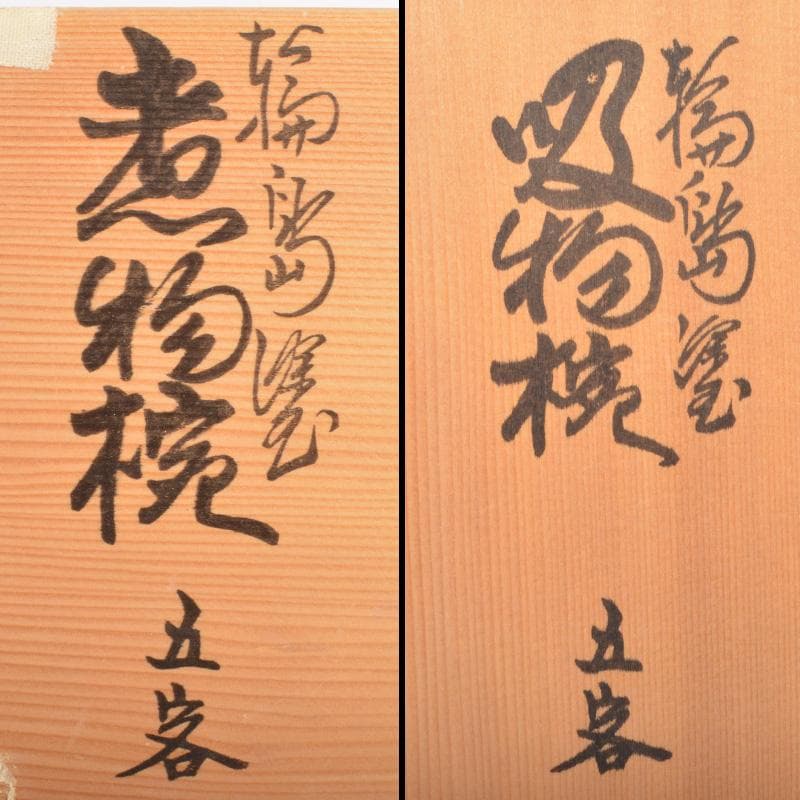 輪島塗
煮物椀
五客
輪島塗
吸物椀
五客